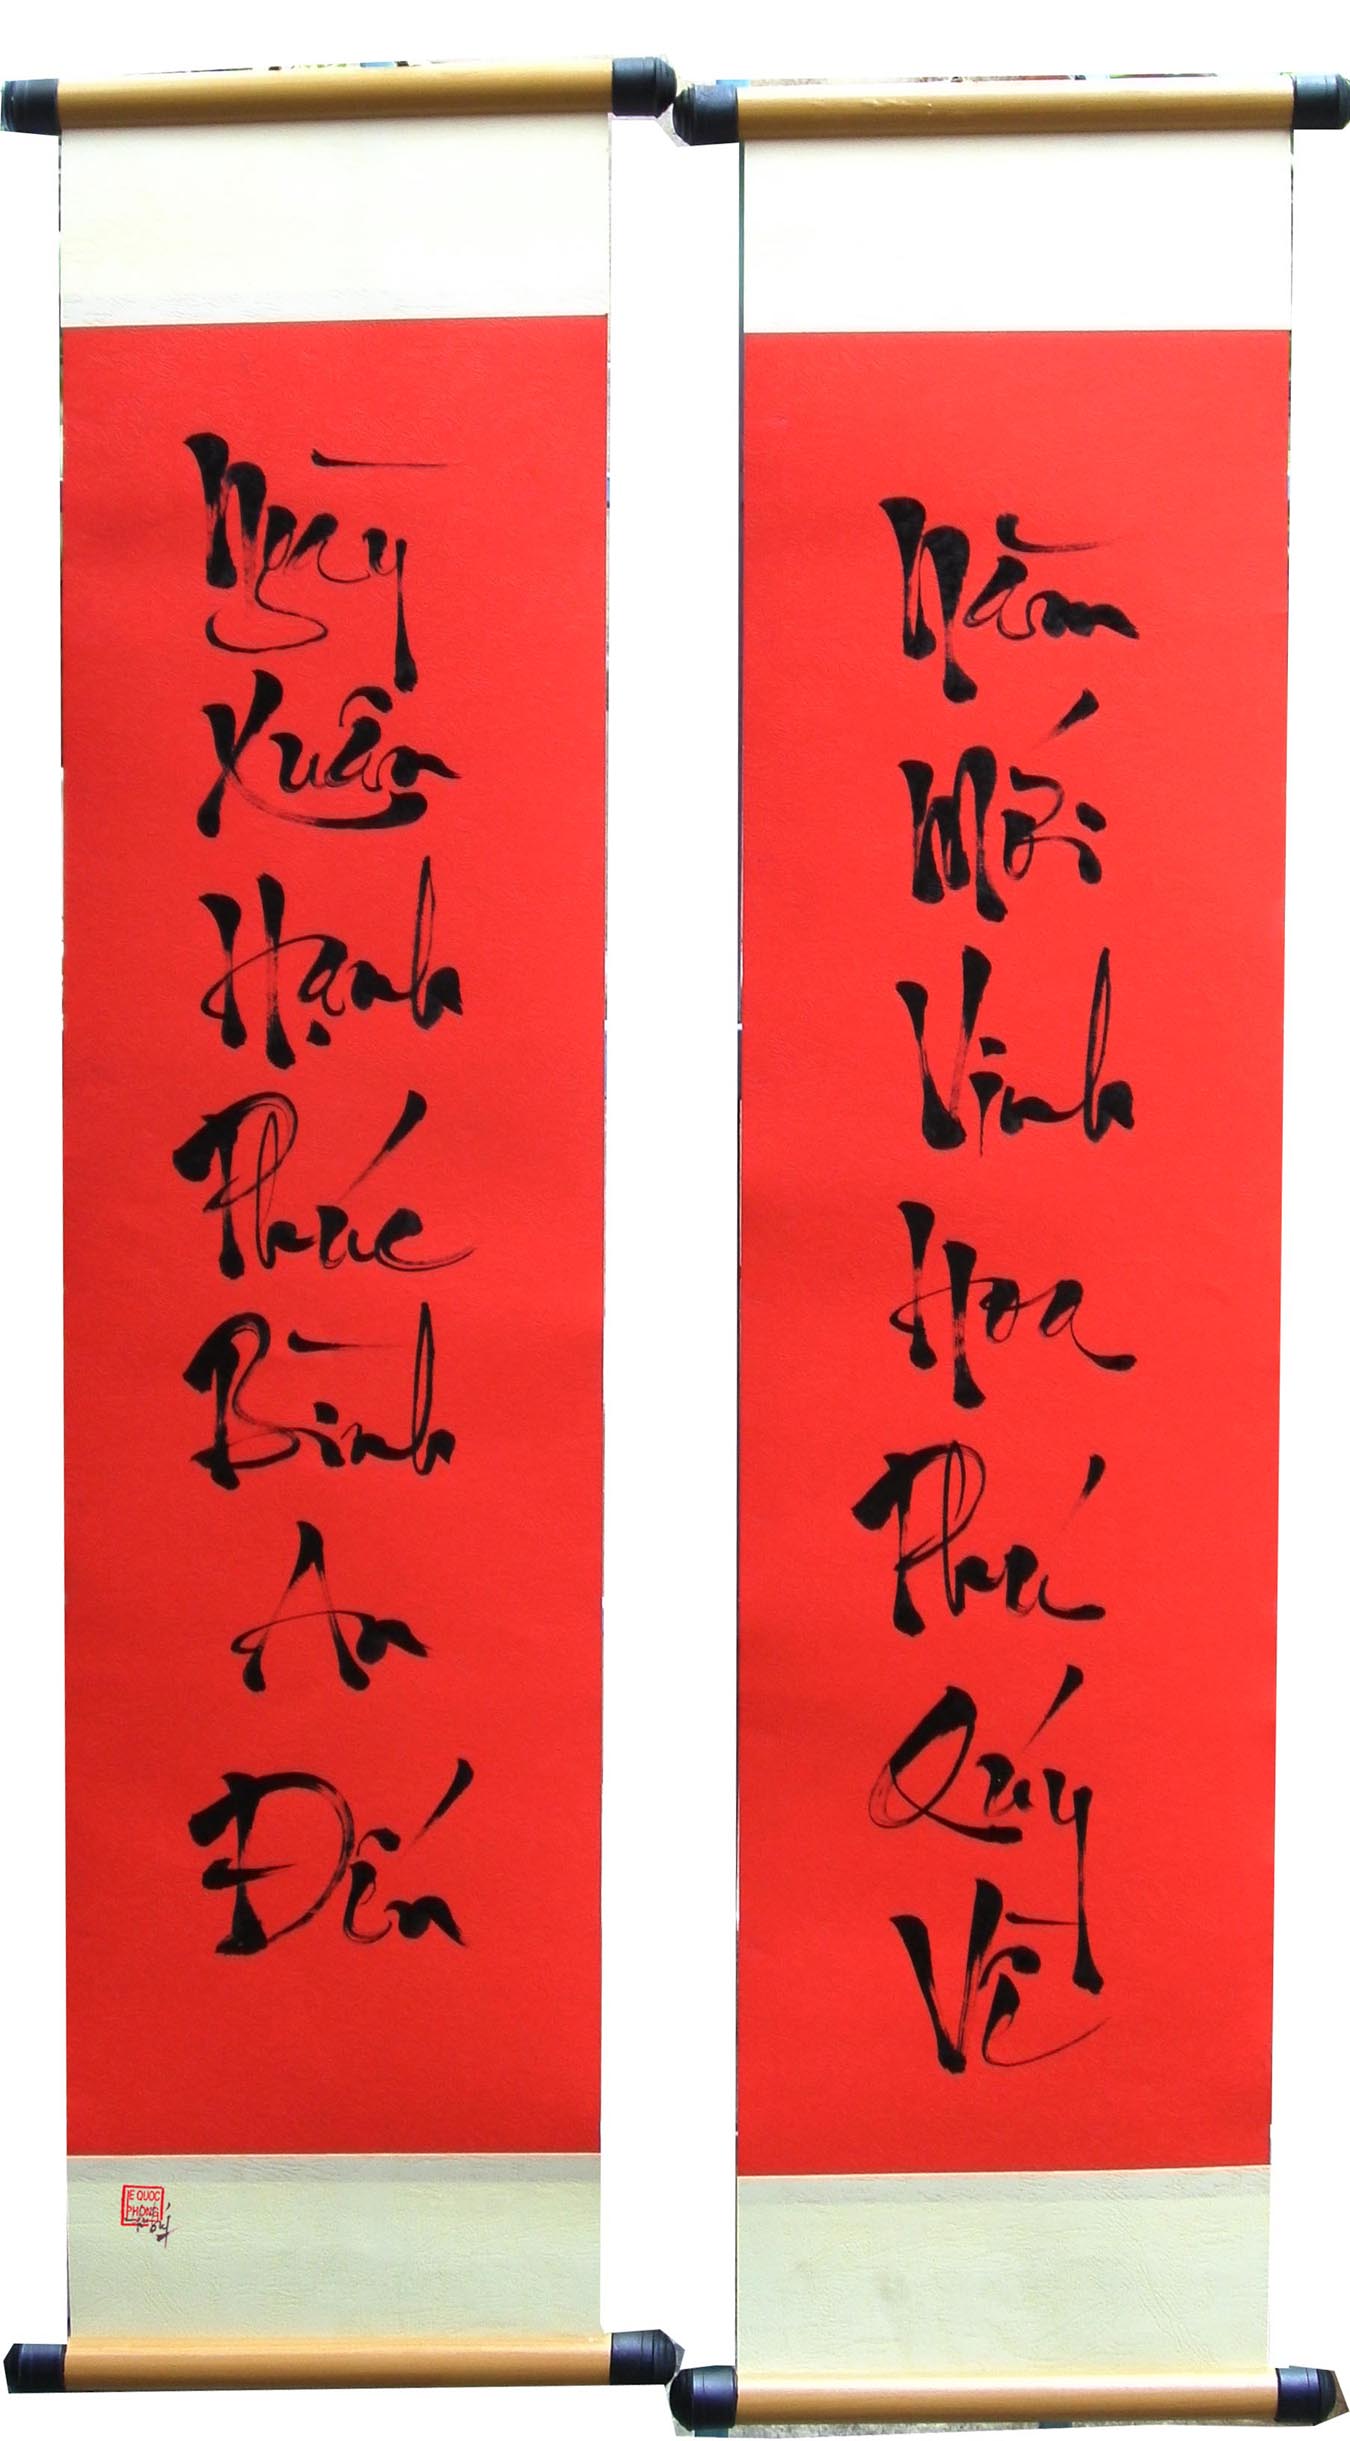 Ngày
Xuân
Hạnh
Phúc
Bình
An
Đến
Năm
Mới
Vinh
Hoa
Phú
Quý
Về
E QUOC
PHONG